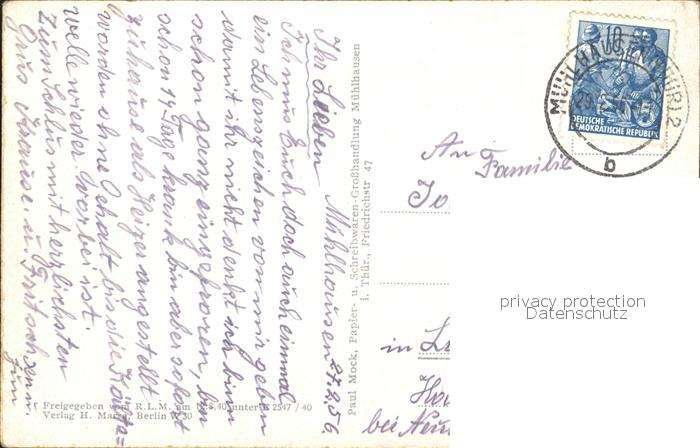 Mühlhausen 27.2.56
Ihr Lieben
Ich mus Euch doch auch einmal
ein Lebenszeichen von mir geben
damit ihr nicht denkt ich bin
schon ganz eingefroren, bin
schon 14 Tage krank bin aber sofort
zuhause als Heizer angestellt
worden ohne Gehalt bis die Kälte=
welle wieder vorbei ist.
Zum Schlus mit herzlichsten
Grus Krause u.
Paul Mock, Papier- u. Schreibwaren-Großhandlung Mühlhausen
i. Thür., Friedrichstr 47
Freigegeben vom R.L.M. am
unter 2547/40
Verlag H. Berlin W 30
10
5
DEUTSCHE
DEMOKRATISCHE REPUBLIK
MÜHLHAUSEN (THÜR) 2
b
An
Familie
in
bei
privacy protection
Datenschutz